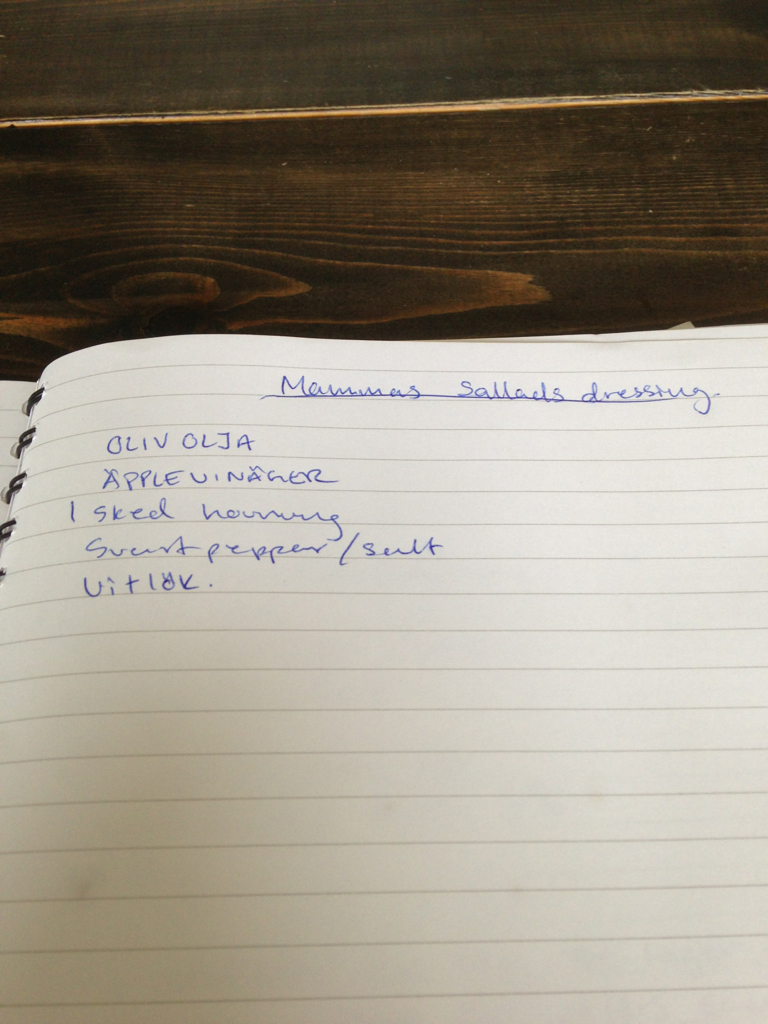 Mammas Sallads dressing.
OLIV OLJA
ÄPPLEVINÄGER
1 sked honung
Svartpeppar/salt
Vitlök.